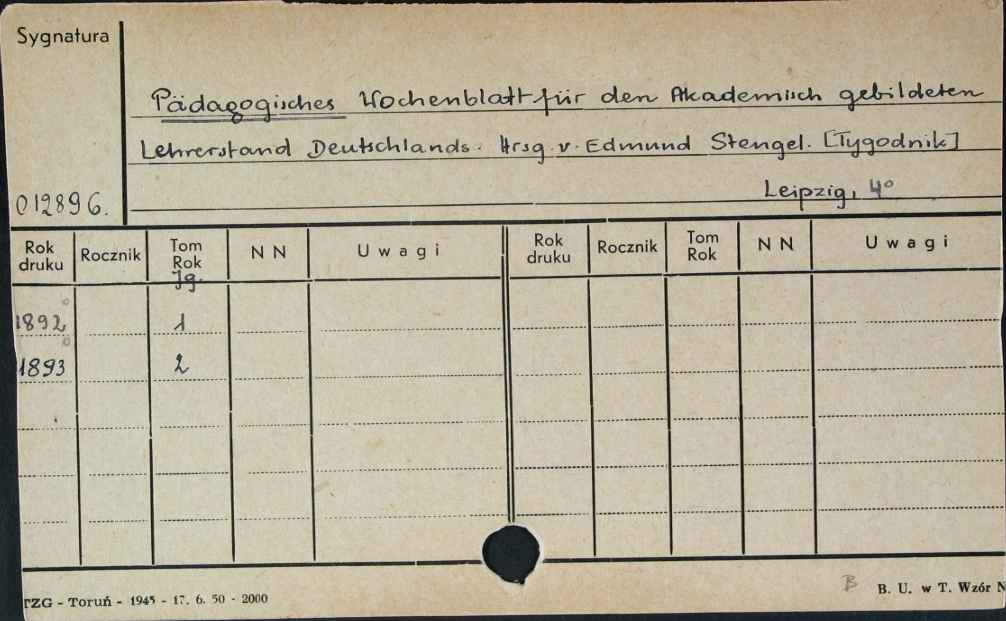 Sygnatura
Pädagogisches Wochenblatt für den Akademisch gebildeten
Lehrerstand Deutschlands. Hrsg. v. Edmund Stengel. [Tygodnik]
Leipzig, 4°
012896.
Rok druku Rocznik Tom Rok Jg. NN Uwagi Rok druku Rocznik Tom Rok NN Uwagi
1892 1
1893 2
B
TZG - Toruń - 1945 - 17. 6. 50 - 2000 B. U. w T. Wzór N